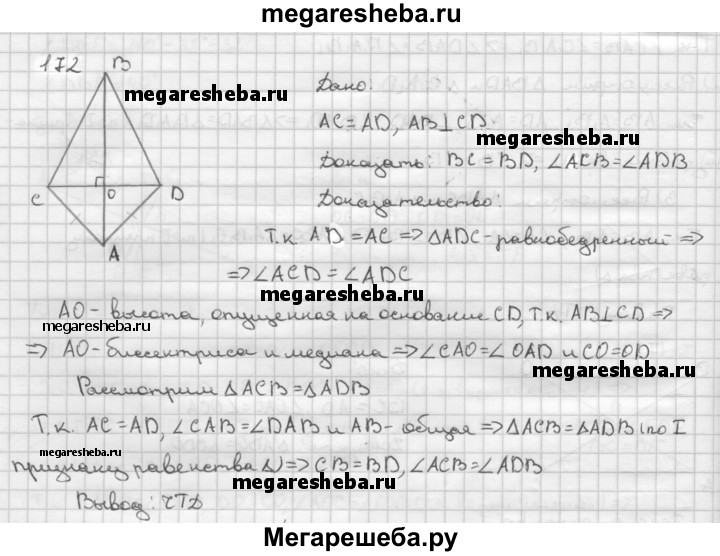 megaresheba.ru
172
B
megaresheba.ru
Дано:
AC = AD, AB⊥CD
megaresheba.ru
Доказать: BC = BD, ∠ACB = ∠ADB
C
O
D
Доказательство:
A
Т.к. AD = AC => ΔADC - равнобедренный =>
=> ∠ACD = ∠ADC
megaresheba.ru
AO - высота, опущенная на основание CD, т.к. AB⊥CD =>
megaresheba.ru
=> AO - биссектриса и медиана => ∠CAO = ∠OAD и CO = OD
megaresheba.ru
Рассмотрим ΔACB = ΔADB
Т.к. AC = AD, ∠CAB = ∠DAB и AB - общая => ΔACB = ΔADB (по I
megaresheba.ru
признаку равенства Δ) => CB = BD, ∠ACB = ∠ADB
megaresheba.ru
Вывод: ЧТД
Мегарешеба.ру